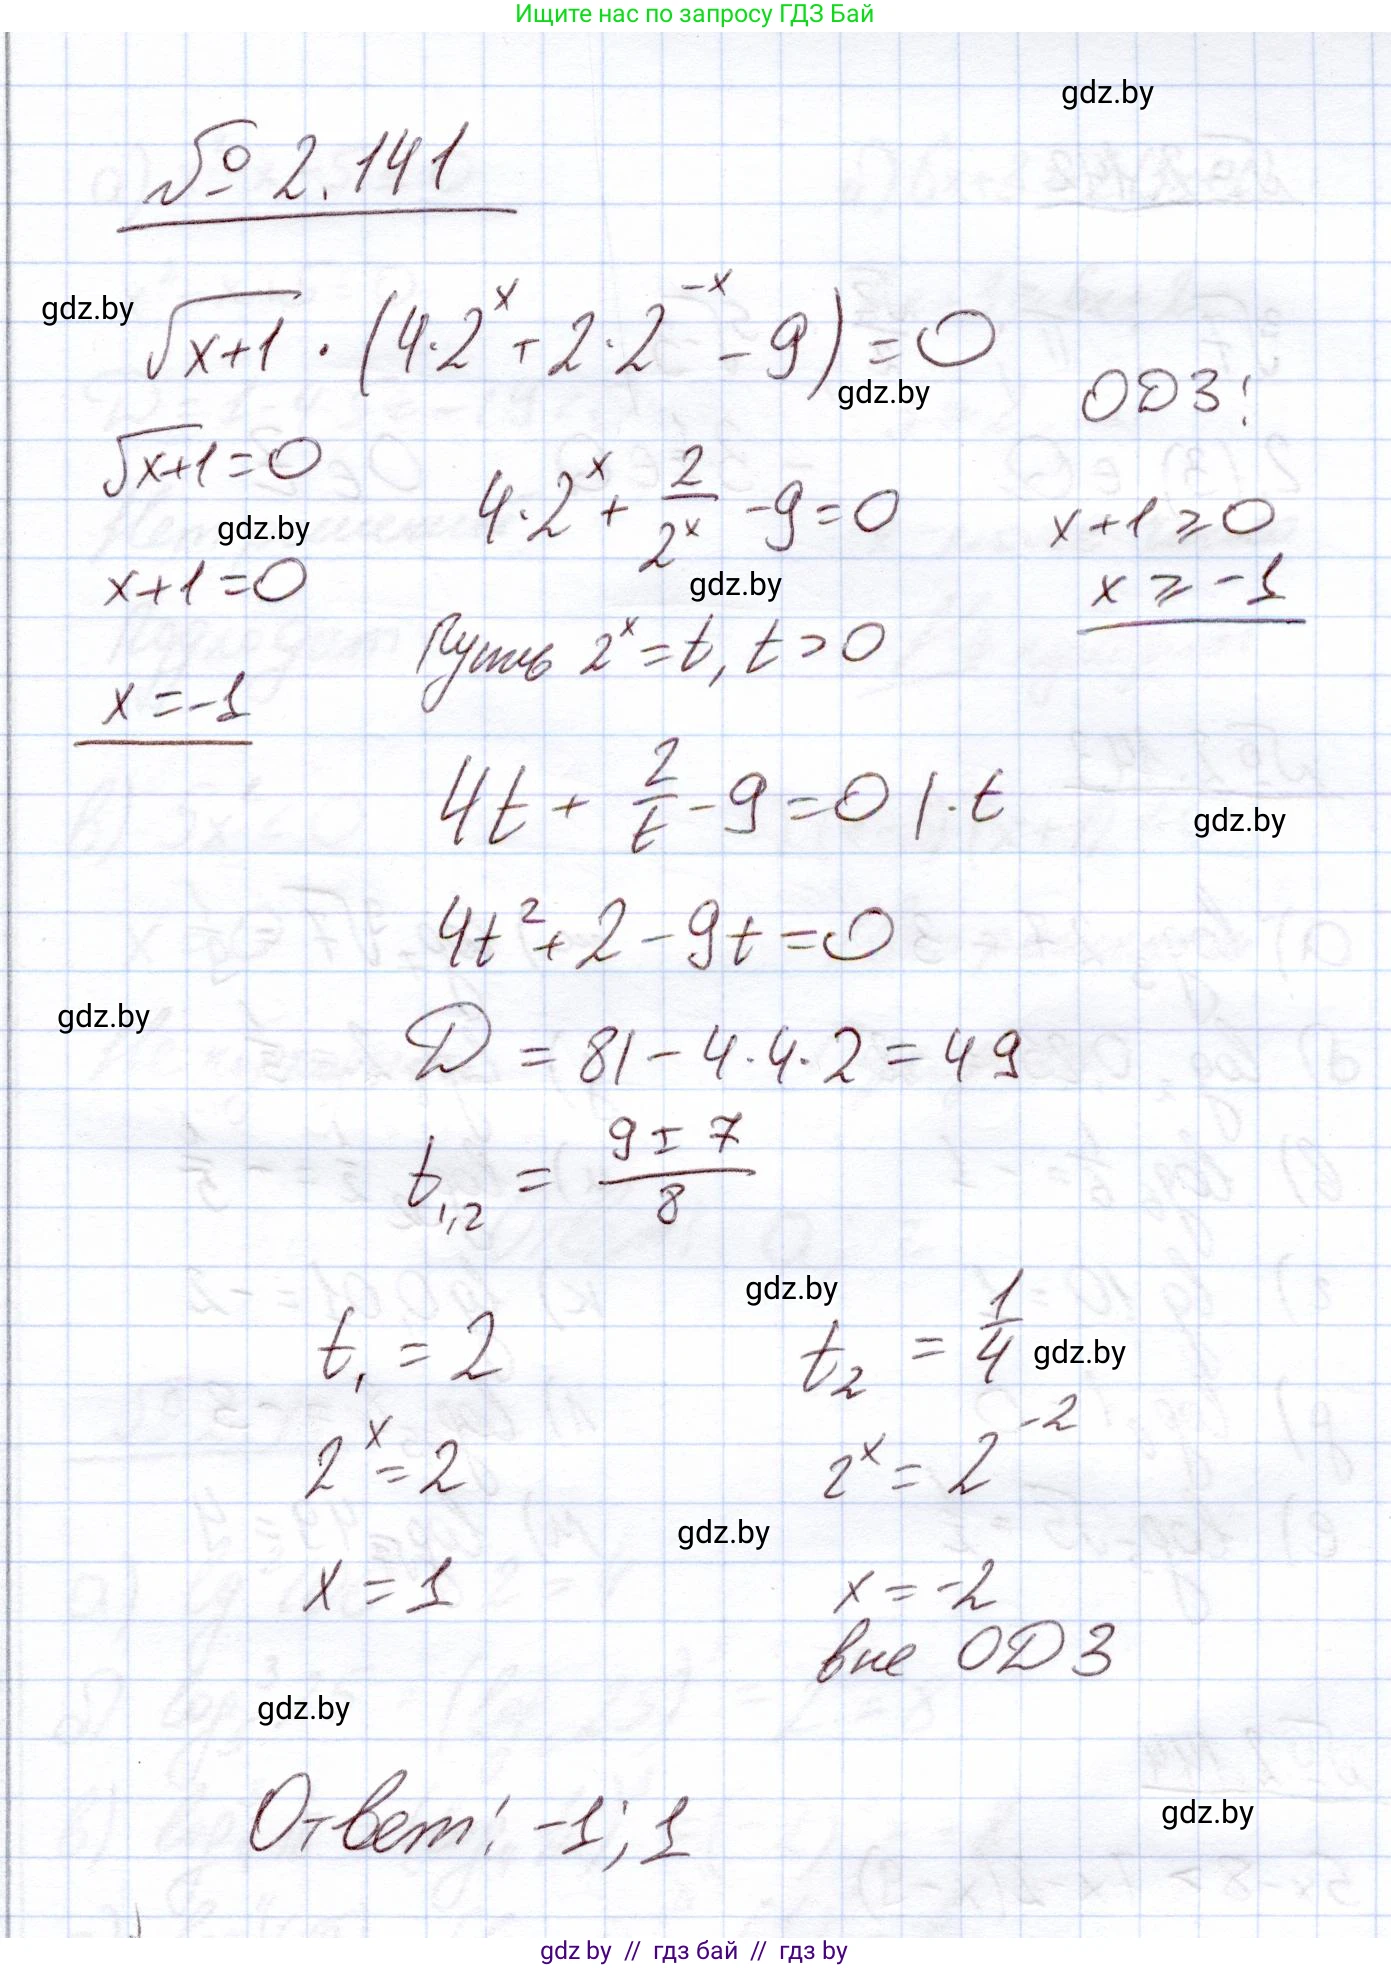 Ищите нас по запросу ГДЗ Бай
gdz.by
№ 2.141
gdz.by
√(x+1) · (4·2^x + 2·2^(-x) - 9) = 0
gdz.by
ОДЗ:
√(x+1) = 0
4·2^x + 2/2^x - 9 = 0
gdz.by
x+1 ≥ 0
x+1 = 0
gdz.by
x ≥ -1
Пусть 2^x = t, t > 0
x = -1
4t + 2/t - 9 = 0 | · t
gdz.by
4t² + 2 - 9t = 0
gdz.by
D = 81 - 4·4·2 = 49
t1,2 = (9 ± 7)/8
gdz.by
t1 = 2
t2 = 1/4
gdz.by
2^x = 2
2^x = 2^(-2)
gdz.by
x = 1
x = -2
вне ОДЗ
gdz.by
Ответ: -1; 1
gdz.by
gdz by // гдз бай // гдз by